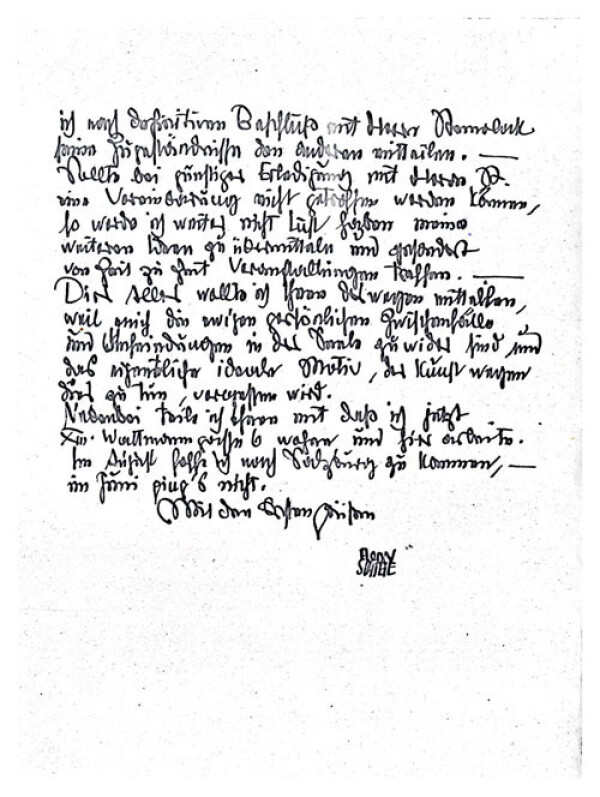 ich nach definitivem Beschluß mit Herrn
seine Zugeständnisse den anderen mitteilen. —
Sollte bei günstiger Erledigung mit Herrn R.
eine Vereinbarung nicht getroffen werden können,
so werde ich weiter nicht Lust haben meine
weiteren Ideen zu übermitteln und gesondert
von Zeit zu Zeit Veranstaltungen treffen. —
Dies alles wollte ich Ihnen deswegen mitteilen,
weil mich die ewigen persönlichen Zwischenfälle
und Anfeindungen in der Seele zu wider sind, und
das eigentliche ideale Motiv, der Kunst wegen
dies zu tun, vergessen wird.
Nebenbei teile ich Ihnen mit daß ich jetzt
XIII. Wattmanngasse 6 wohne und hier arbeite.
Im August hoffe ich nach Salzburg zu kommen, —
im Juni ging's nicht.
Mit den besten Grüßen